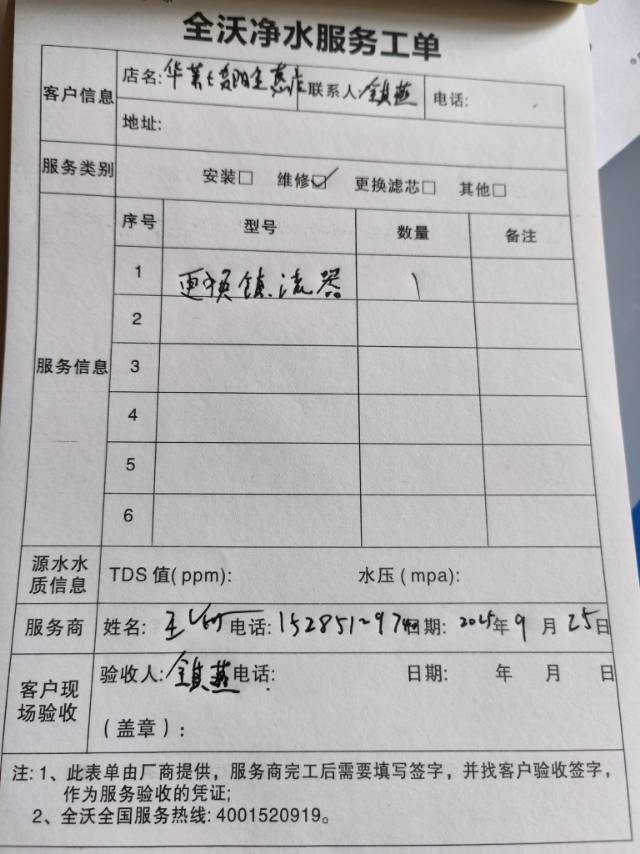 全沃净水服务工单
客户信息 店名: 华莱士 联系人: 电话:
地址:
服务类别 安装□ 维修☑ 更换滤芯□ 其他□
服务信息 序号 型号 数量 备注
1 更换镇流器 1
2
3
4
5
6
源水水质信息 TDS 值(ppm): 水压(mpa):
服务商 姓名: 王 电话: 日期: 2025年9月25日
客户现场验收 验收人: 电话: 日期: 年 月 日
(盖章):
注: 1、此表单由厂商提供，服务商完工后需要填写签字，并找客户验收签字，
作为服务验收的凭证;
2、全沃全国服务热线: 4001520919。